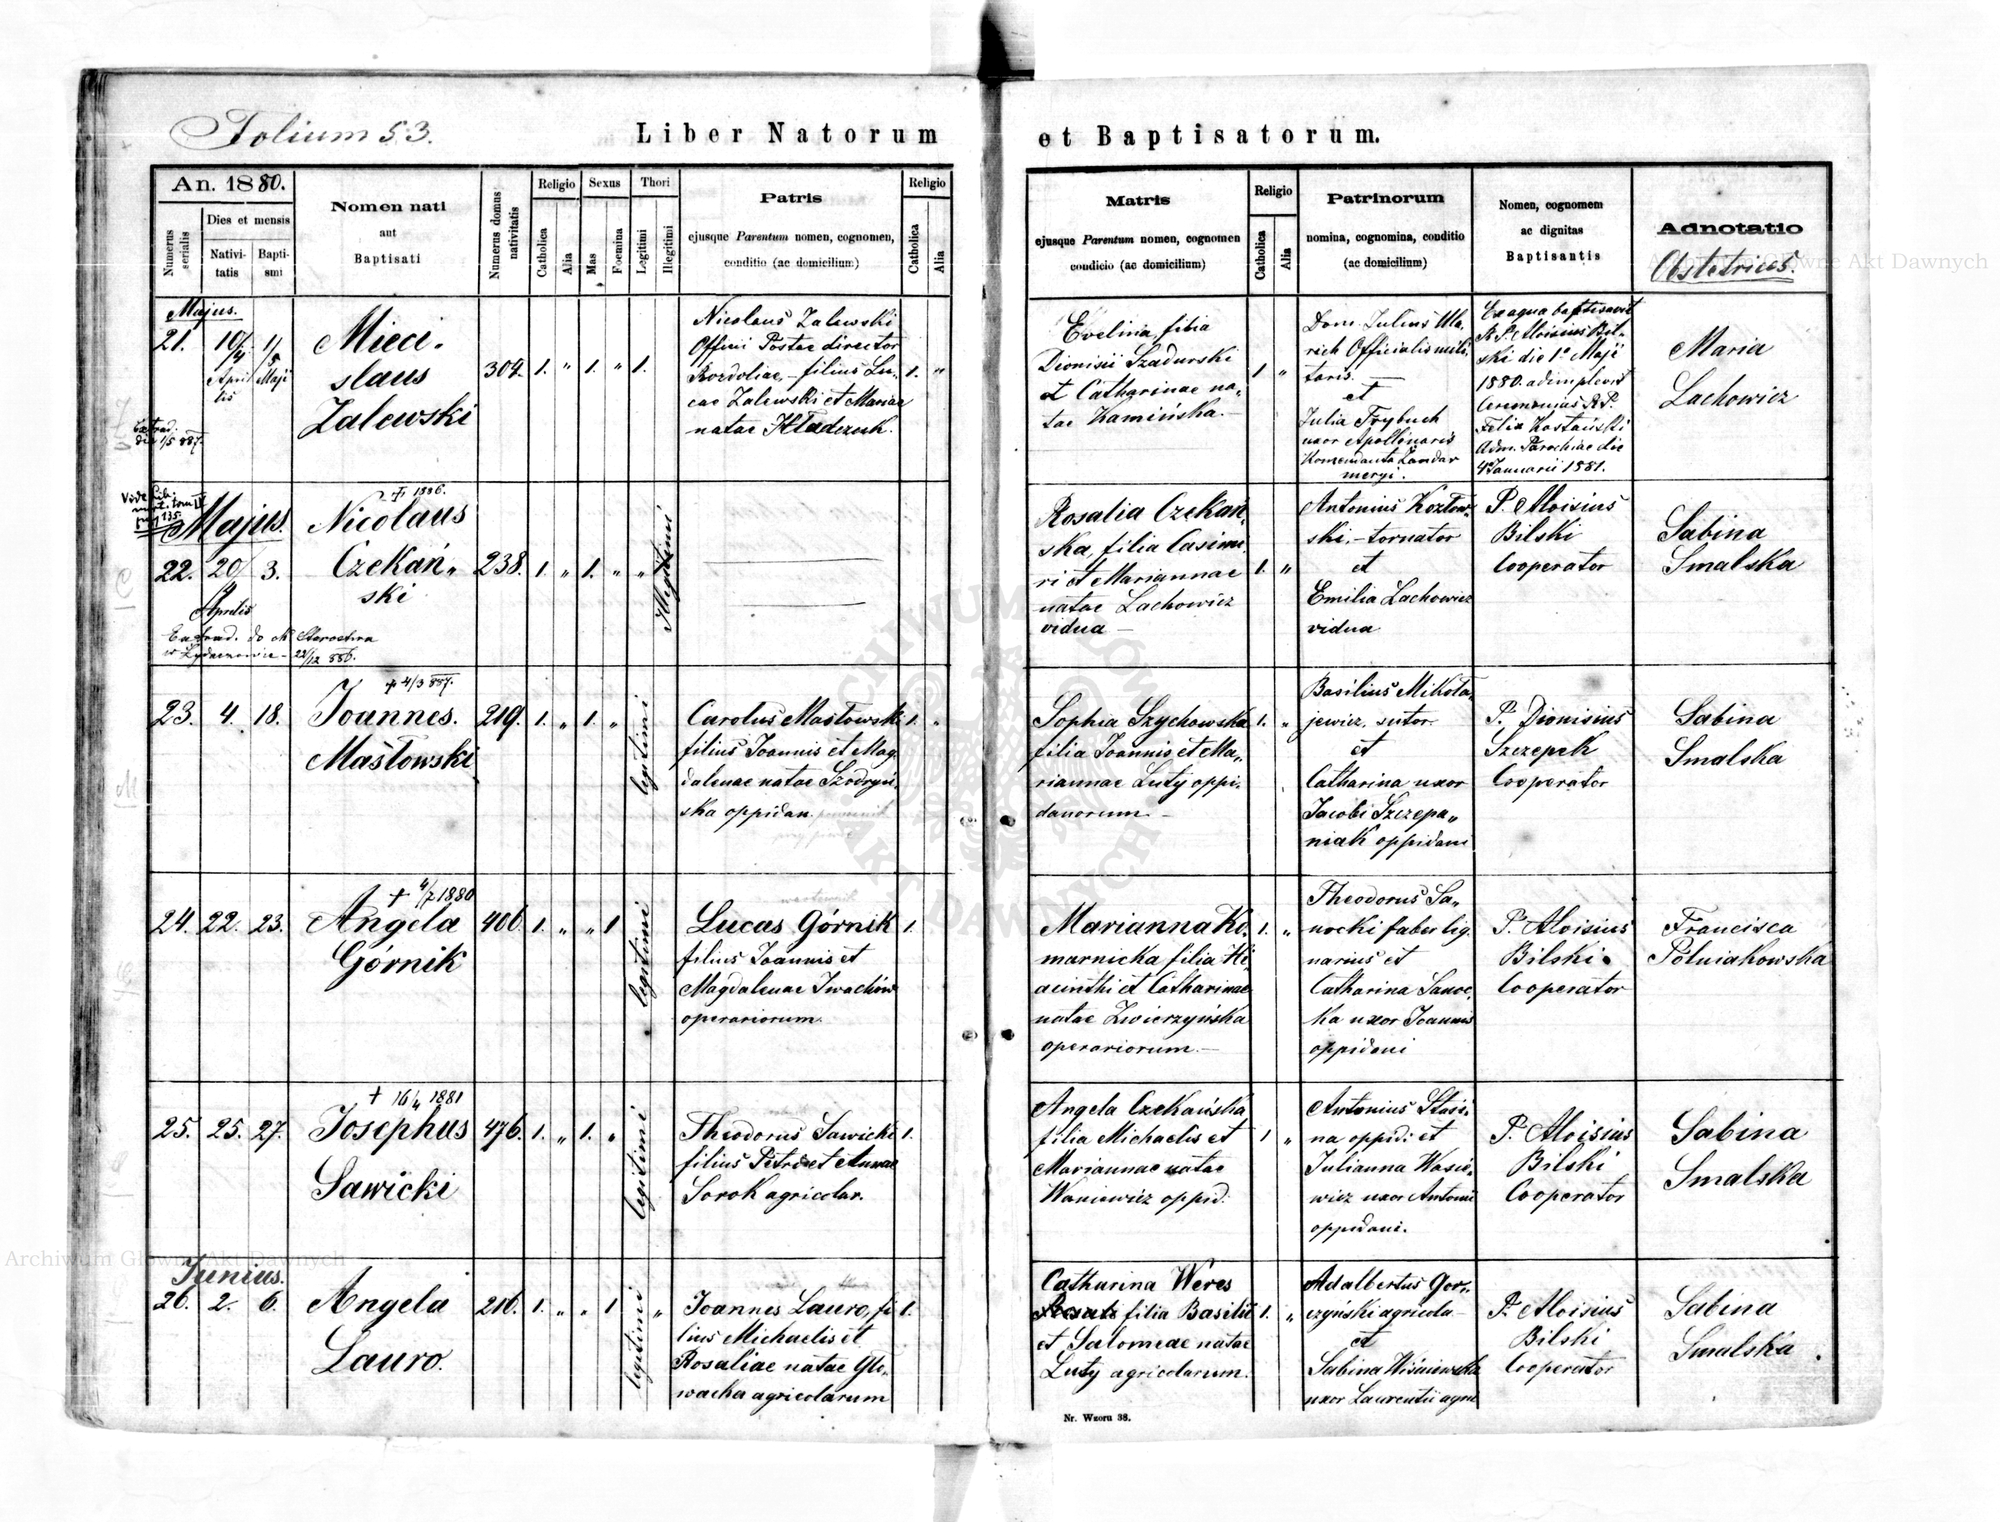 Folium 53.
Liber Natorum
et Baptisatorum.
An. 1880.
Numerus serialis
Dies et mensis
Nativitatis
Baptismi
Nomen nati
aut
Baptisati
Numerus domus nativitatis
Religio
Catholica
Alia
Sexus
Mas
Foemina
Thori
Legitimi
Illegitimi
Patris
ejusque Parentum nomen, cognomen,
conditio (ac domicilium)
Religio
Catholica
Alia
Matris
ejusque Parentum nomen, cognomen
condicio (ac domicilium)
Religio
Catholica
Alia
Patrinorum
nomina, cognomina, conditio
(ac domicilium)
Nomen, cognomem
ac dignitas
Baptisantis
Adnotatio
Obstetrices.
Majus.
21. 10/4 Aprilis 1/5 Maji
Extrad. die 1/5 887.
Mieci-
slaus
Zalewski
304. 1. „ 1. „ 1.
Nicolaus Zalewski
Officii Postae director
Rozdoliae, – filius Lu-
cae Zalewski et Mariae
natae Hladczuk.
1. „
Evelina filia
Dionisii Szadurski
et Catharinae na-
tae Kamińska. –
1 „
Dom. Julius Ula-
rich Officialis mili-
taris. –
et
Julia Trybuch
uxor Apollinaris
Komendanta Żandar
meryi.
Ex aqua baptisavit
R. P. Aloisius Bil-
ski die 1ª Maji
1880. adimplevit
Ceremonias R. P.
Felix Kostański
Adm. Parochiae die
4 Januarii 1881.
Maria
Lachowicz
Vide Lib.
mort. tom IV
pag 135.
Majus.
22. 20/4 Aprilis 3.
Extrad. do Starostwa
22/12 886.
† 1886.
Nicolaus
Czekań„
ski
238. 1. „ 1. „ „
Illegitimi
Rosalia Czekań-
ska, filia Casimi-
ri et Mariannae
natae Lachowicz
vidua –
1. „
Antonius Kozłow-
ski, – tornator
et
Emilia Lachowicz
vidua
P. Aloisius
Bilski
Cooperator
Sabina
Smalska
† 4/3 887.
23. 4. 18.
Joannes.
Masłowski
219. 1. „ 1. „
legitimi
Carolus Masłowski
filius Joannis et Mag
dalenae natae Szodryń-
ska oppidan.
1. „
Sophia Szychowska
filia Joannis et Ma„
riannae Luty oppi-
danorum –
1. „
Basilius Mikoła-
jewicz, sutor
et
Catharina uxor
Jacobi Szczepa„
niak oppidani
P. Dionisius
Szczepek
Cooperator
Sabina
Smalska
† 4/7 1880
24. 22. 23.
Angela
Górnik
406. 1. „ „ 1
legitimi
Lucas Górnik
filius Joannis et
Magdalenae Iwachów
operariorum.
1.
Marianna Ko-
marnicka filia Hi-
acinthi et Catharinae
natae Zwierzyńska
operariorum. –
1. „
Theodorus Sa„
nocki faber lig-
narius et
Catharina Sanoc-
ka uxor Joannis
oppidani
P. Aloisius
Bilski
Cooperator
Francisca
Pótniakowska
† 16/4 1881
25. 25. 27.
Josephus
Sawicki
476. 1. „ 1. „
legitimi
Theodorus Sawicki
filius Petri et Annae
Sorok agricolar.
1.
Angela Czekańska
filia Michaelis et
Mariannae natae
Waniewicz oppid.
1 „
Antonius Stasi-
na oppid: et
Julianna Wasie-
wicz uxor Antonii
oppidani.
P. Aloisius
Bilski
Cooperator
Sabina
Smalska
Junius.
26. 2. 6.
Angela
Lauro.
216. 1. „ „ 1
legitimi „
Joannes Lauro, fi
lius Michaelis et
Rosaliae natae Gło-
wacka agricolarum
1.
Catharina Weres
filia Basilii
et Salomeae natae
Luty agricolarum.
1. „
Adalbertus Gor-
czyński agricola –
et
Sabina Wiśniewska
uxor Laurentii agric
P. Aloisius
Bilski
Cooperator
Sabina
Smalska.
Nr. Wzoru 38.
Archiwum Główne Akt Dawnych
Archiwum Główne Akt Dawnych
ARCHIWUM GŁÓWNE AKT DAWNYCH